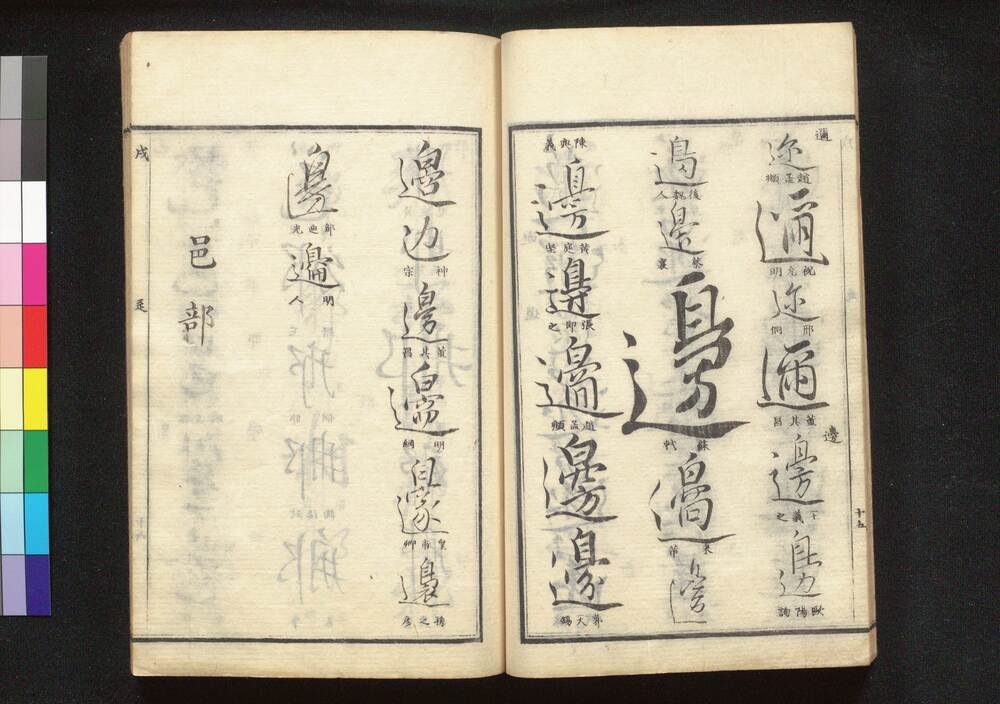 邇
迩
趙孟頫
邇
祝允明
迩
邢侗
邇
董其昌
邊
邊
王羲之
邊
歐陽詢
邊
後魏人
邊
蔡襄
邊
蘇軾
邊
米芾
邊
陳奐義
邊
黃庭堅
邊
張即之
邊
趙孟頫
邊
邊
郭天錫
十五
邊
边
神宗
邊
董其昌
邊
明綱
邊
皇甫卿
邊
邊
解迪光
邊
明人
邑部
戌
辵